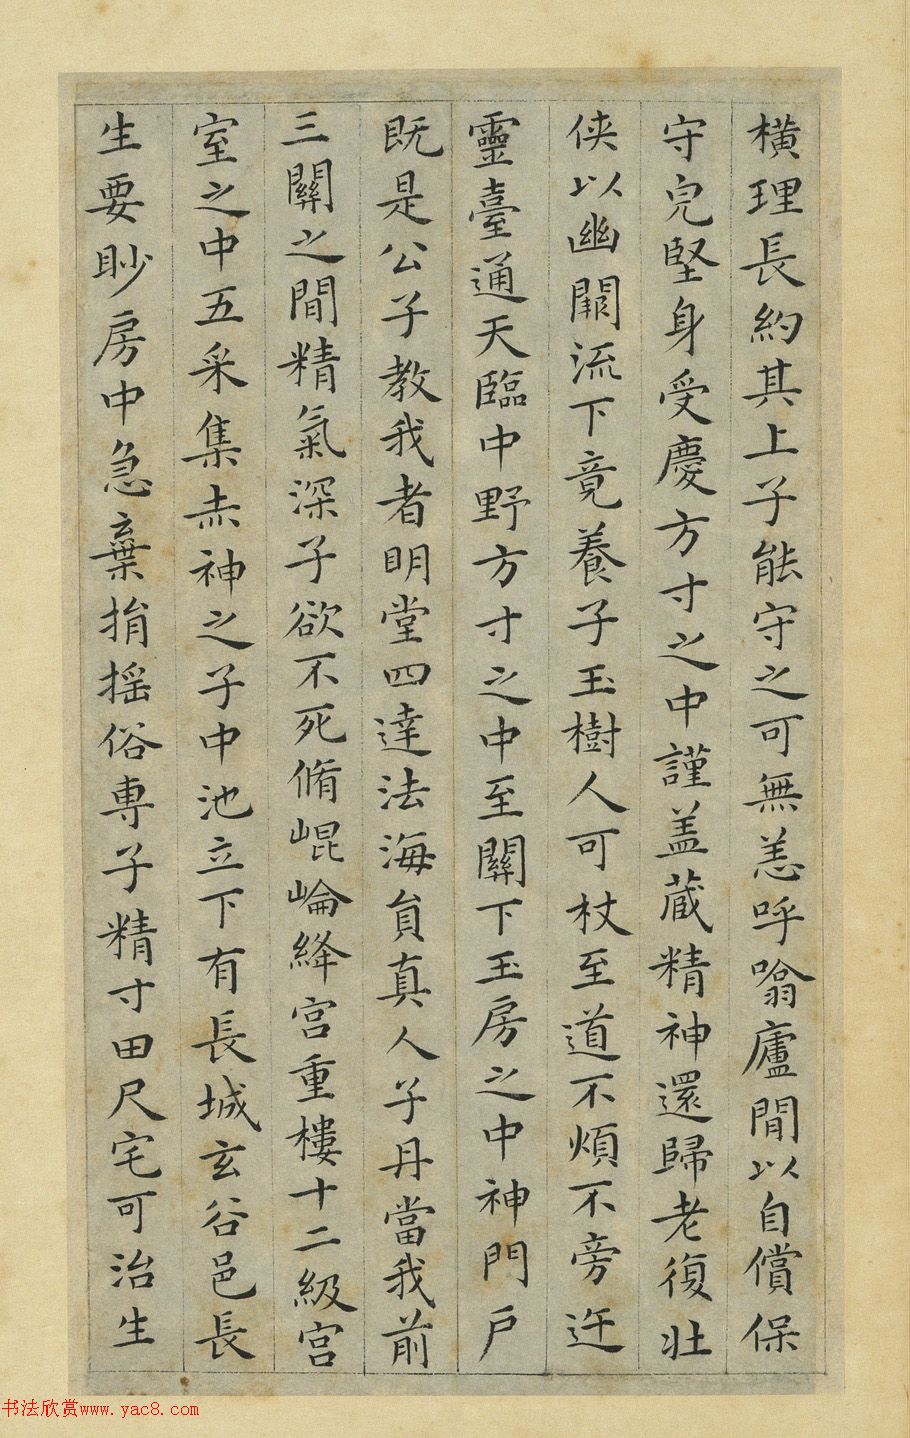 橫理長約其上子能守之可無恙呼噏廬間以自償保
守完堅身受慶方寸之中謹盖藏精神還歸老復壯
侠以幽闕流下竟養子玉樹人可杖至道不煩不旁迕
靈臺通天臨中野方寸之中至關下玉房之中神門戶
既是公子教我者明堂四達法海員真人子丹當我前
三關之間精氣深子欲不死脩崐崘絳宮重樓十二級宮
室之中五采集赤神之子中池立下有長城玄谷邑長
生要眇房中急棄捐搖俗專子精寸田尺宅可治生
书法欣赏www.yac8.com